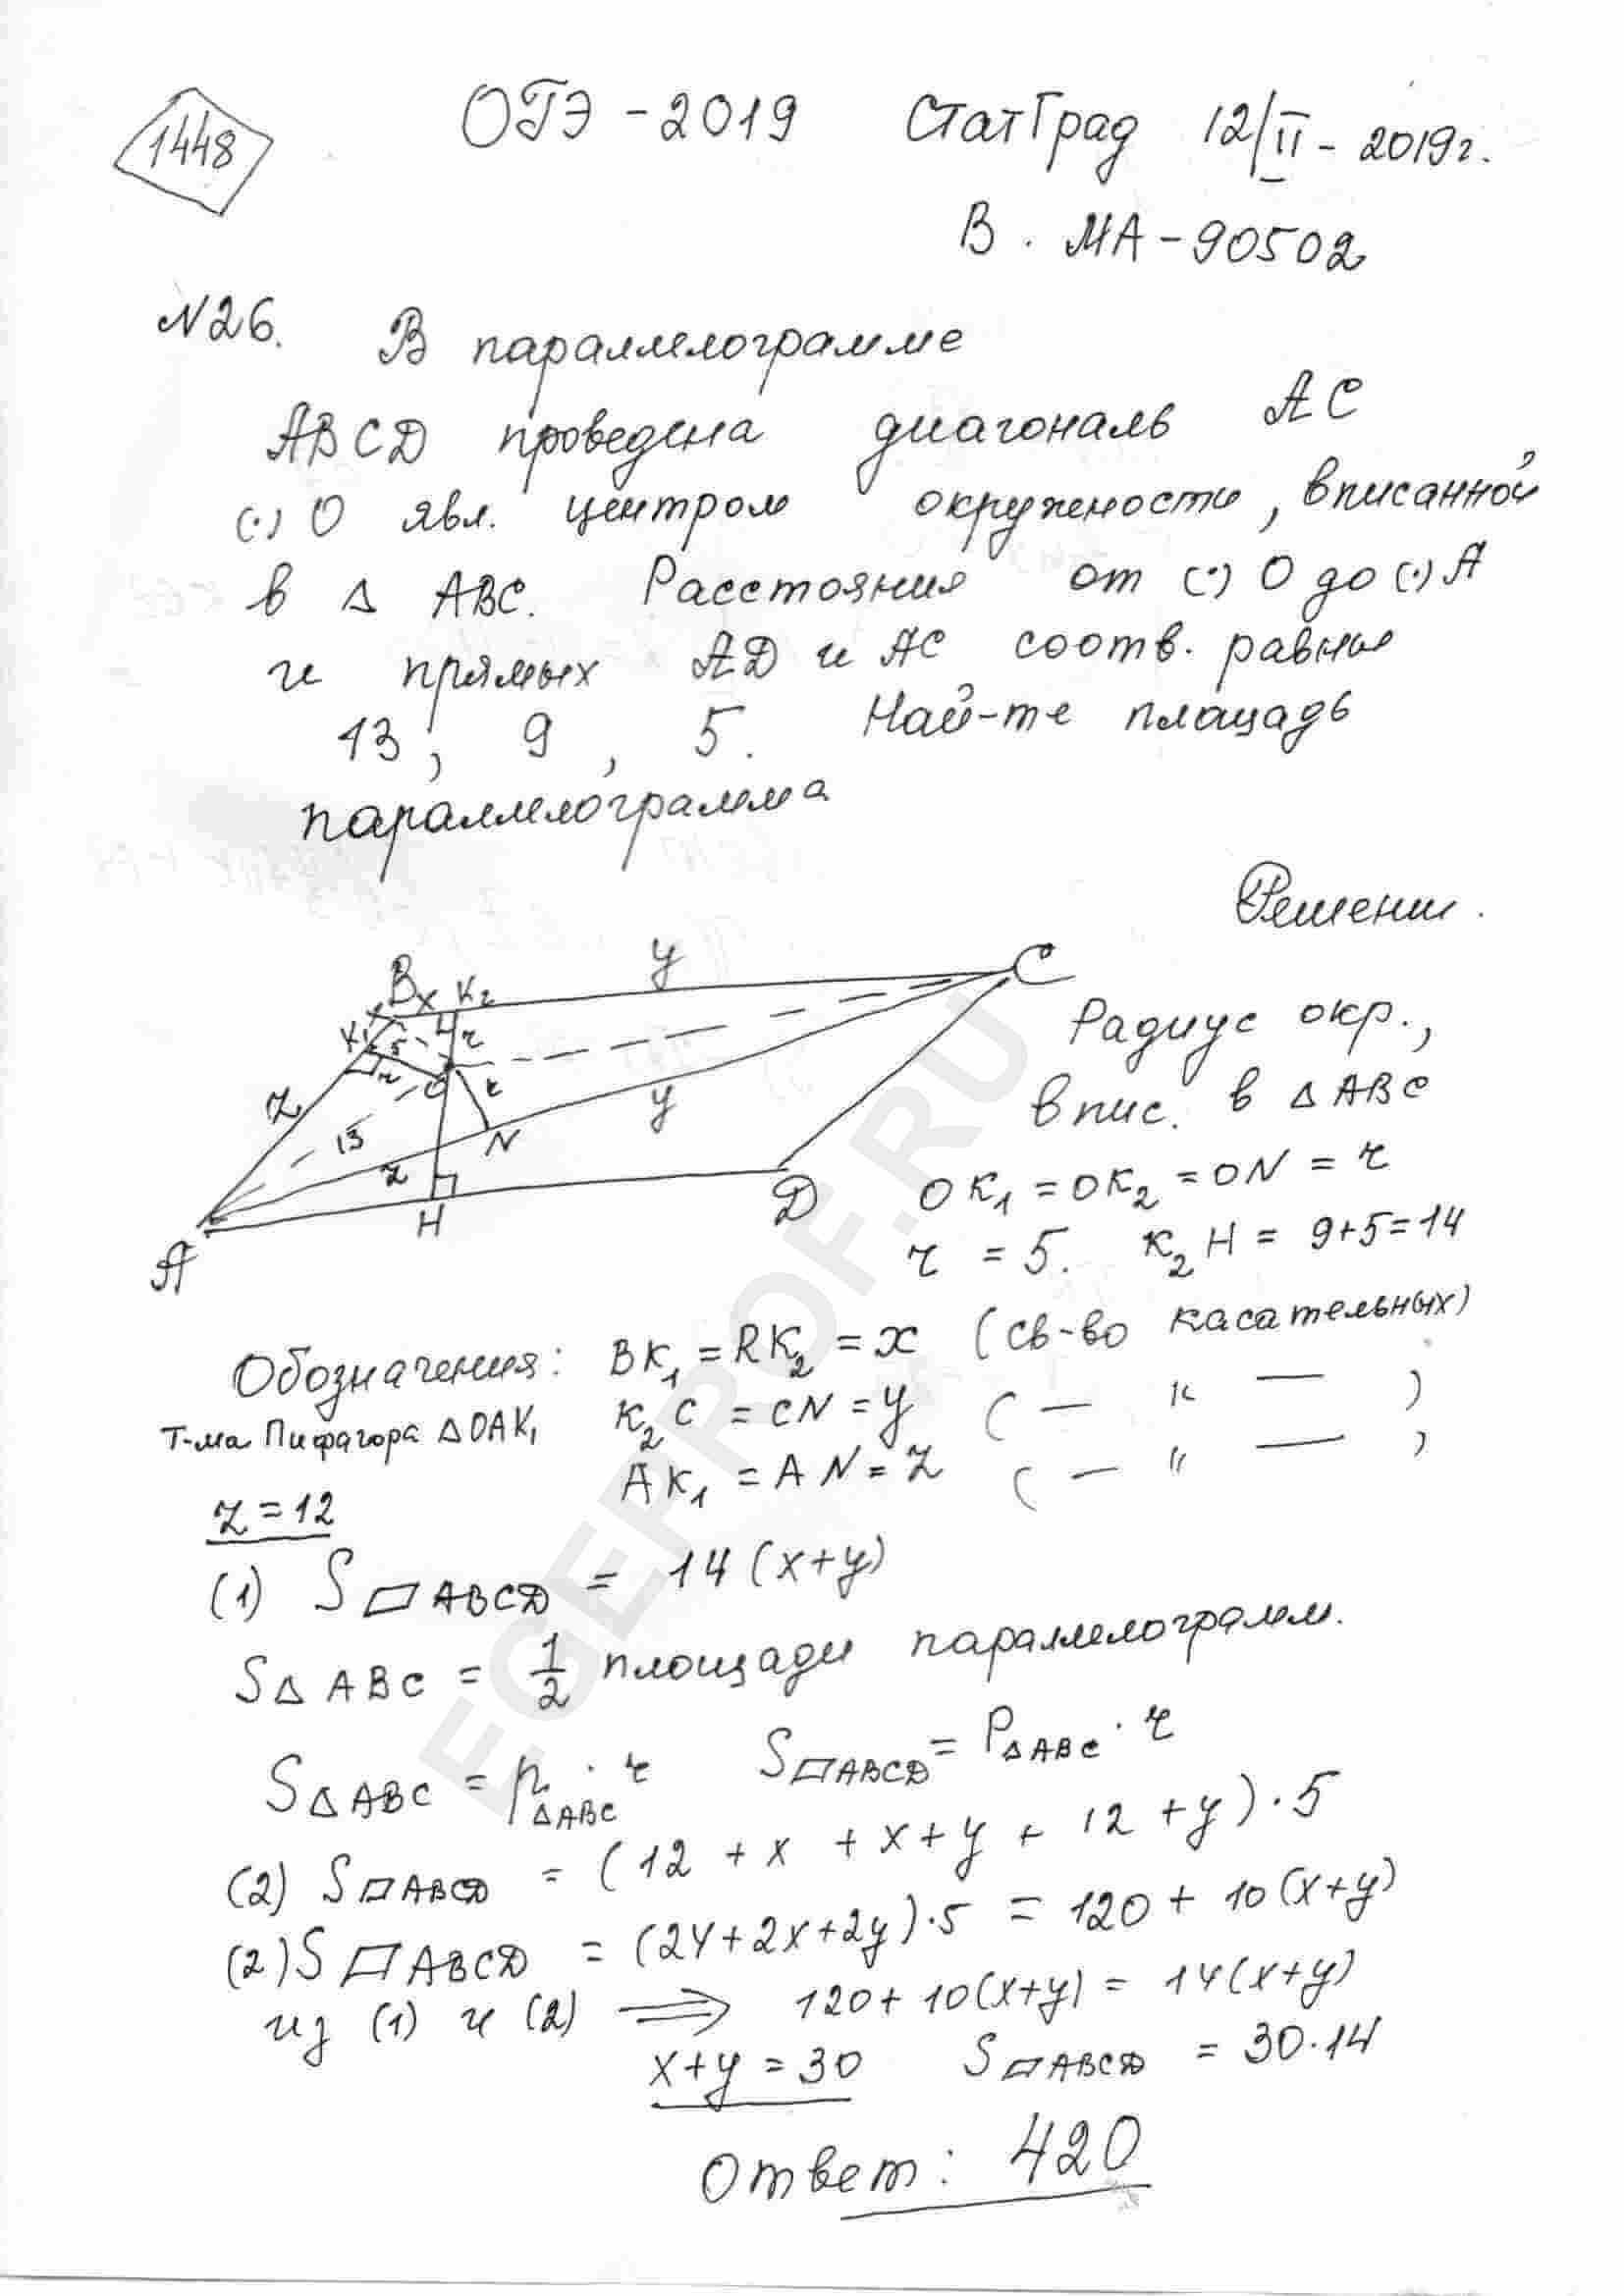 1448
ОГЭ - 2019 СтатГрад 12/II - 2019г.
В. МА - 90502
N26. В параллелограмме
ABCD проведена диагональ AC
(·) O явл. центром окружности, вписанной
в △ ABC. Расстояния от (·) O до (·) A
и прямых AD и AC соотв. равны
13, 9, 5. Най-те площадь
параллелограмма
Решение.
B x K2 y C
K1 5 r
z 13 O r N y
A z H D
Радиус окр.,
впис. в △ ABC
OK1 = OK2 = ON = r
r = 5. K2H = 9+5=14
Обозначения: BK1 = RK2 = x (св-во касательных)
Т-ма Пифагора △OAK1 K2C = CN = y ( — " — )
AK1 = AN = z ( — " — )
z = 12
(1) S▱ABCD = 14(x+y)
S△ABC = 1/2 площади параллелограмм.
S△ABC = p△ABC · r S▱ABCD = P△ABC · r
(2) S▱ABCD = (12 + x + x + y + 12 + y) · 5
(2) S▱ABCD = (24+2x+2y)·5 = 120 + 10(x+y)
из (1) и (2) ⟹ 120 + 10(x+y) = 14(x+y)
x+y = 30 S▱ABCD = 30·14
Ответ: 420
EGEPROF.RU